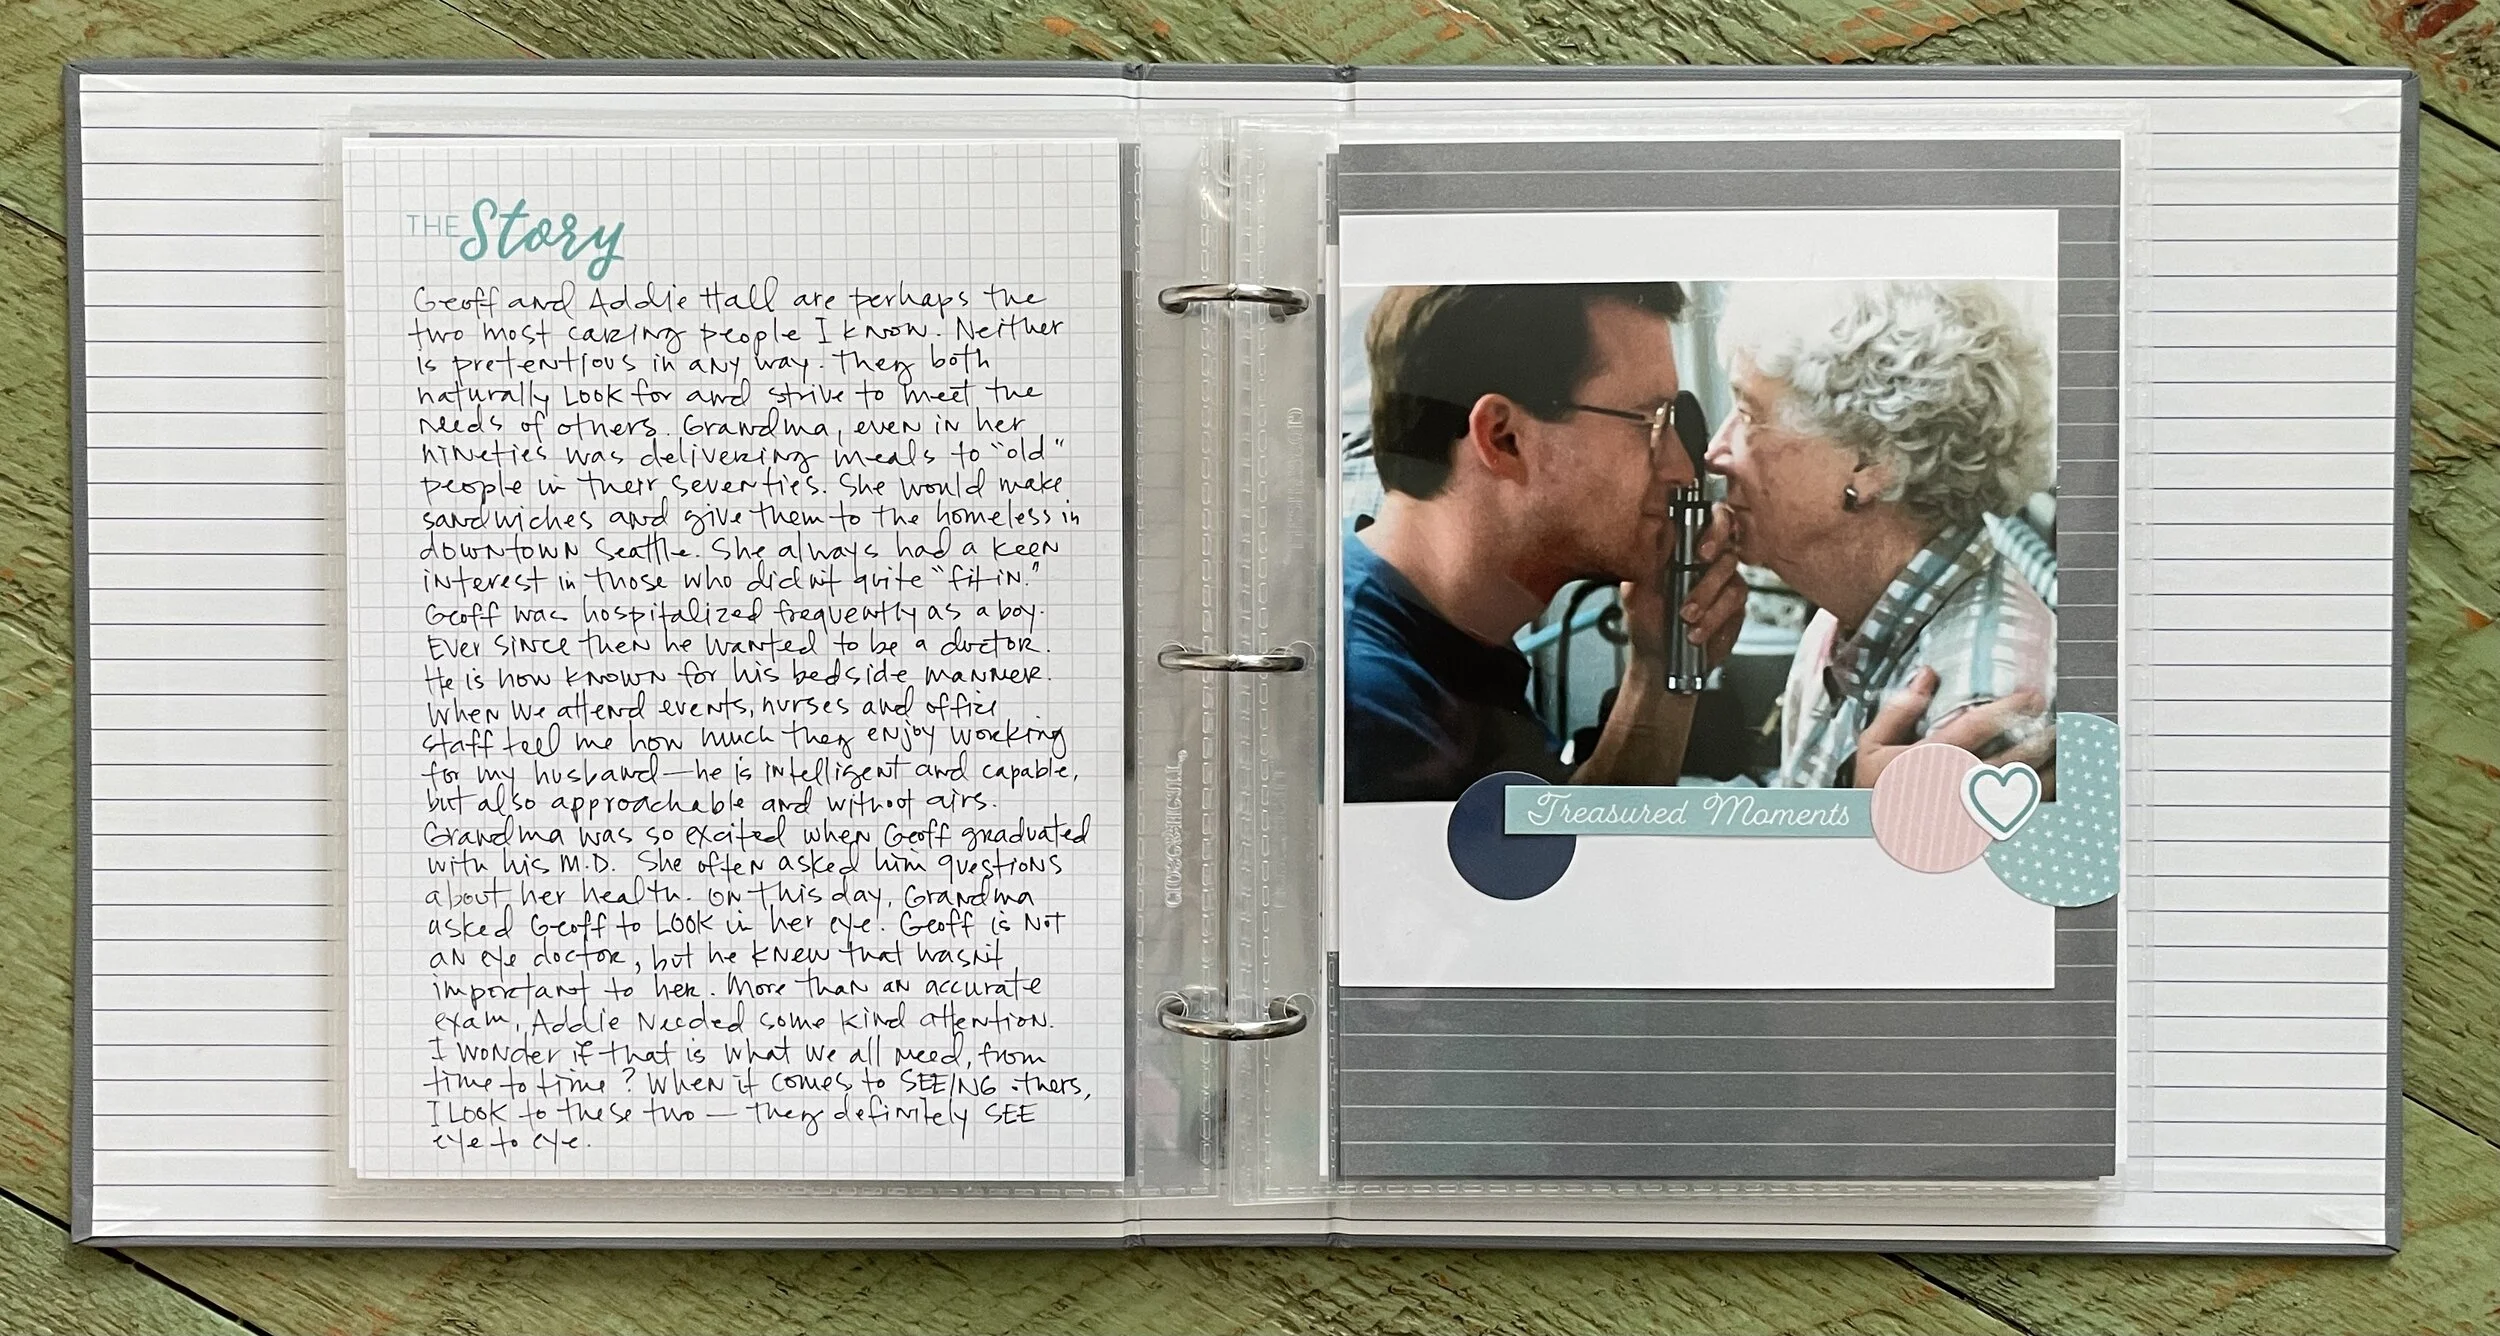 THE Story
Geoff and Addie Hall are perhaps the
two most caring people I know. Neither
is pretentious in any way. They both
naturally look for and strive to meet the
needs of others. Grandma, even in her
nineties was delivering meals to "old"
people in their seventies. She would make
sandwiches and give them to the homeless in
downtown Seattle. She always had a keen
interest in those who didn't quite "fit in."
Geoff was hospitalized frequently as a boy.
Ever since then he wanted to be a doctor.
He is now known for his bedside manner.
When we attend events, nurses and office
staff tell me how much they enjoy working
for my husband—he is intelligent and capable,
but also approachable and without airs.
Grandma was so excited when Geoff graduated
with his M.D. She often asked him questions
about her health. On this day, Grandma
asked Geoff to look in her eye. Geoff is not
an eye doctor, but he knew that wasn't
important to her. More than an accurate
exam, Addie needed some kind attention.
I wonder if that is what we all need, from
time to time? When it comes to SEEING others,
I look to these two — they definitely SEE
eye to eye.
Treasured Moments